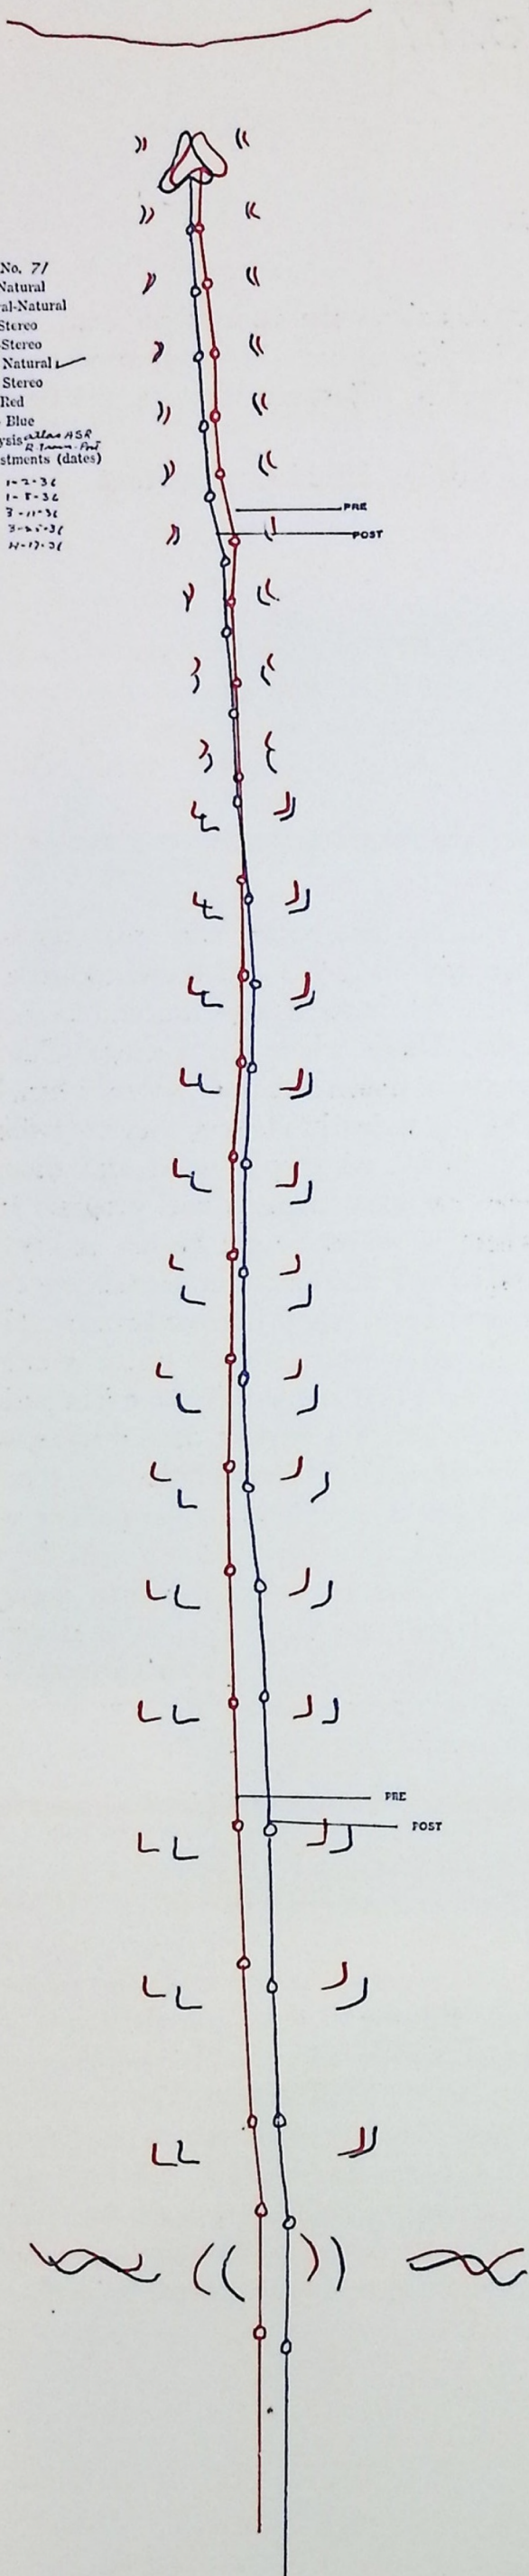 No. 71
Natural
al-Natural
Stereo
-Stereo
Natural ✓
Stereo
Red
Blue
ysis atlas ASR
stments (dates)
1-2-36
1-8-36
3-11-36
3-25-36
4-17-36
PRE
POST
PRE
POST